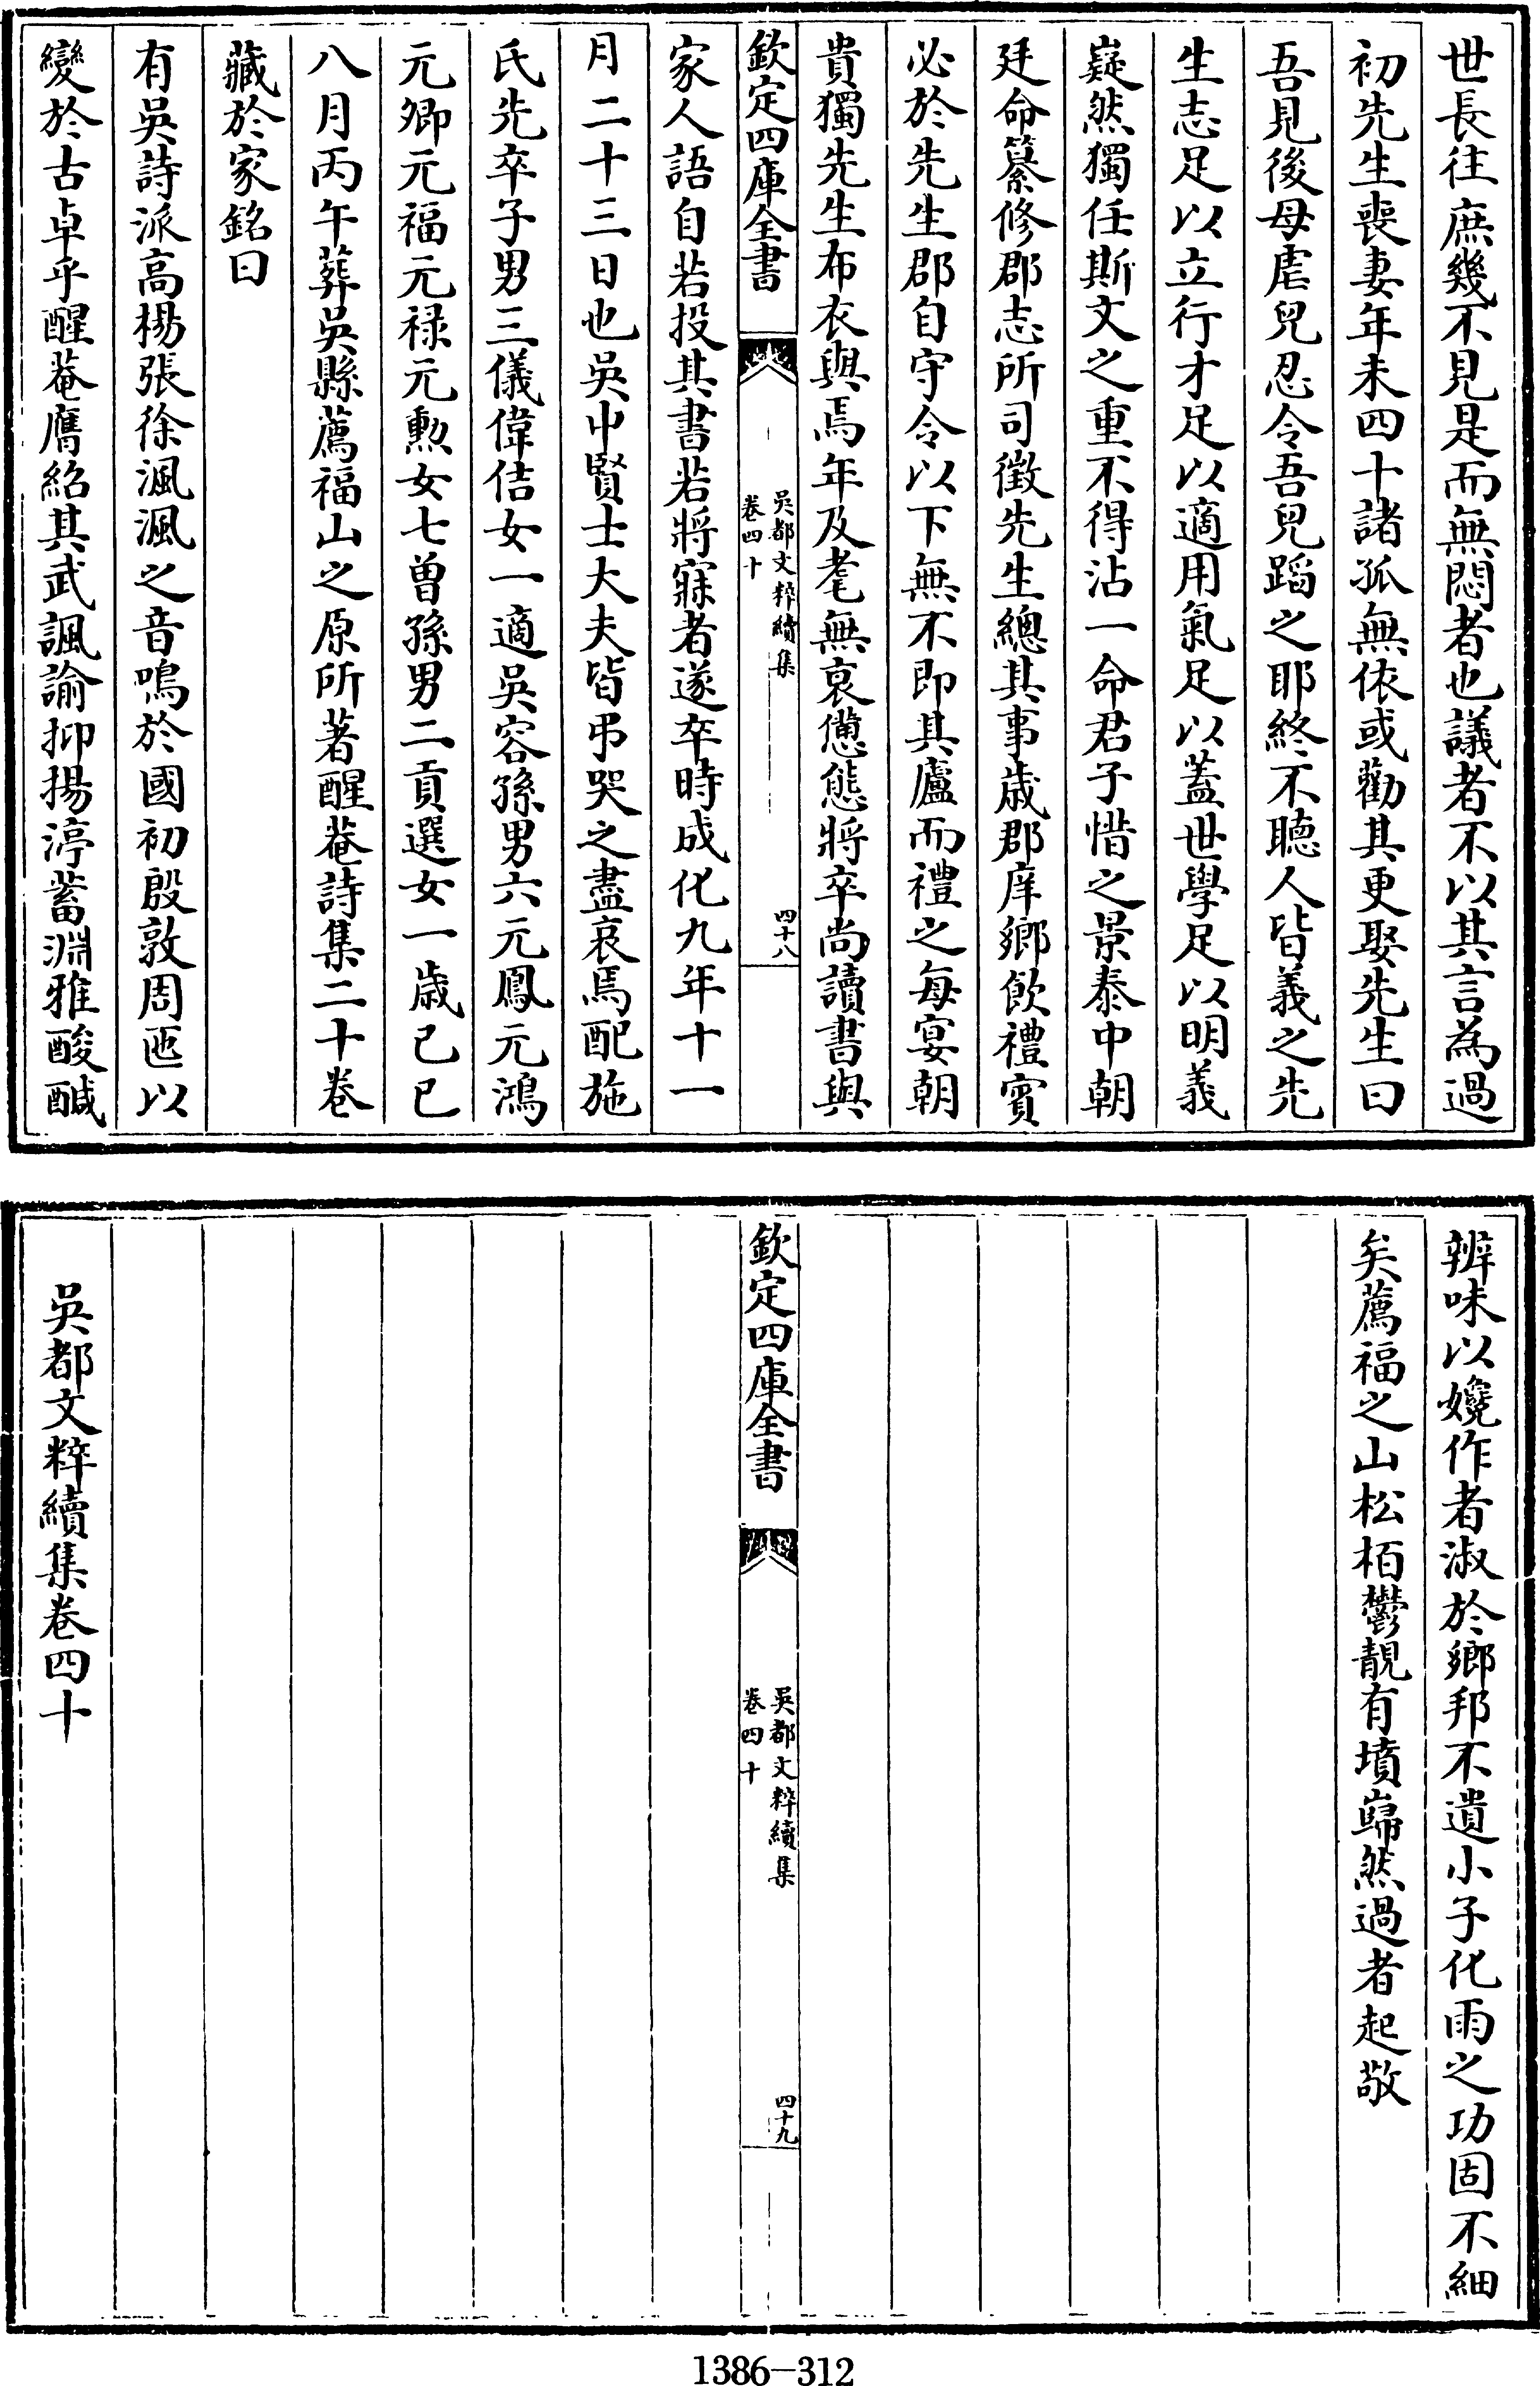 世長往庶幾不見是而無悶者也議者不以其言為過
初先生喪妻年未四十諸孤無依或勸其更娶先生曰
吾見後母虐兒忍令吾兒蹈之耶終不聽人皆義之先
生志足以立行才足以適用氣足以蓋世學足以明義
嶷然獨任斯文之重不得沾一命君子惜之景泰中朝
廷命纂修郡志所司徵先生總其事歲郡庠鄉飲禮賓
必於先生郡自守令以下無不即其廬而禮之每宴朝
貴獨先生布衣與焉年及耄無哀憊態將卒尚讀書與
欽定四庫全書
吳都文粹續集
卷四十
四十八
家人語自若投其書若將寐者遂卒時成化九年十一
月二十三日也吳中賢士大夫皆弔哭之盡哀焉配施
氏先卒子男三儀偉佶女一適吳容孫男六元鳳元鴻
元卿元福元祿元勲女七曾孫男二貢選女一歲己巳
八月丙午葬吳縣薦福山之原所著醒菴詩集二十卷
藏於家銘曰
有吳詩派高楊張徐渢渢之音鳴於國初殷敦周匜以
變於古卓乎醒菴膺紹其武諷諭抑揚渟蓄淵雅酸醎
辨味以嬓作者淑於鄉邦不遺小子化雨之功固不細
矣薦福之山松栢鬱靚有墳巋然過者起敬
欽定四庫全書
吳都文粹續集
卷四十
四十九
吳都文粹續集卷四十
1386-312